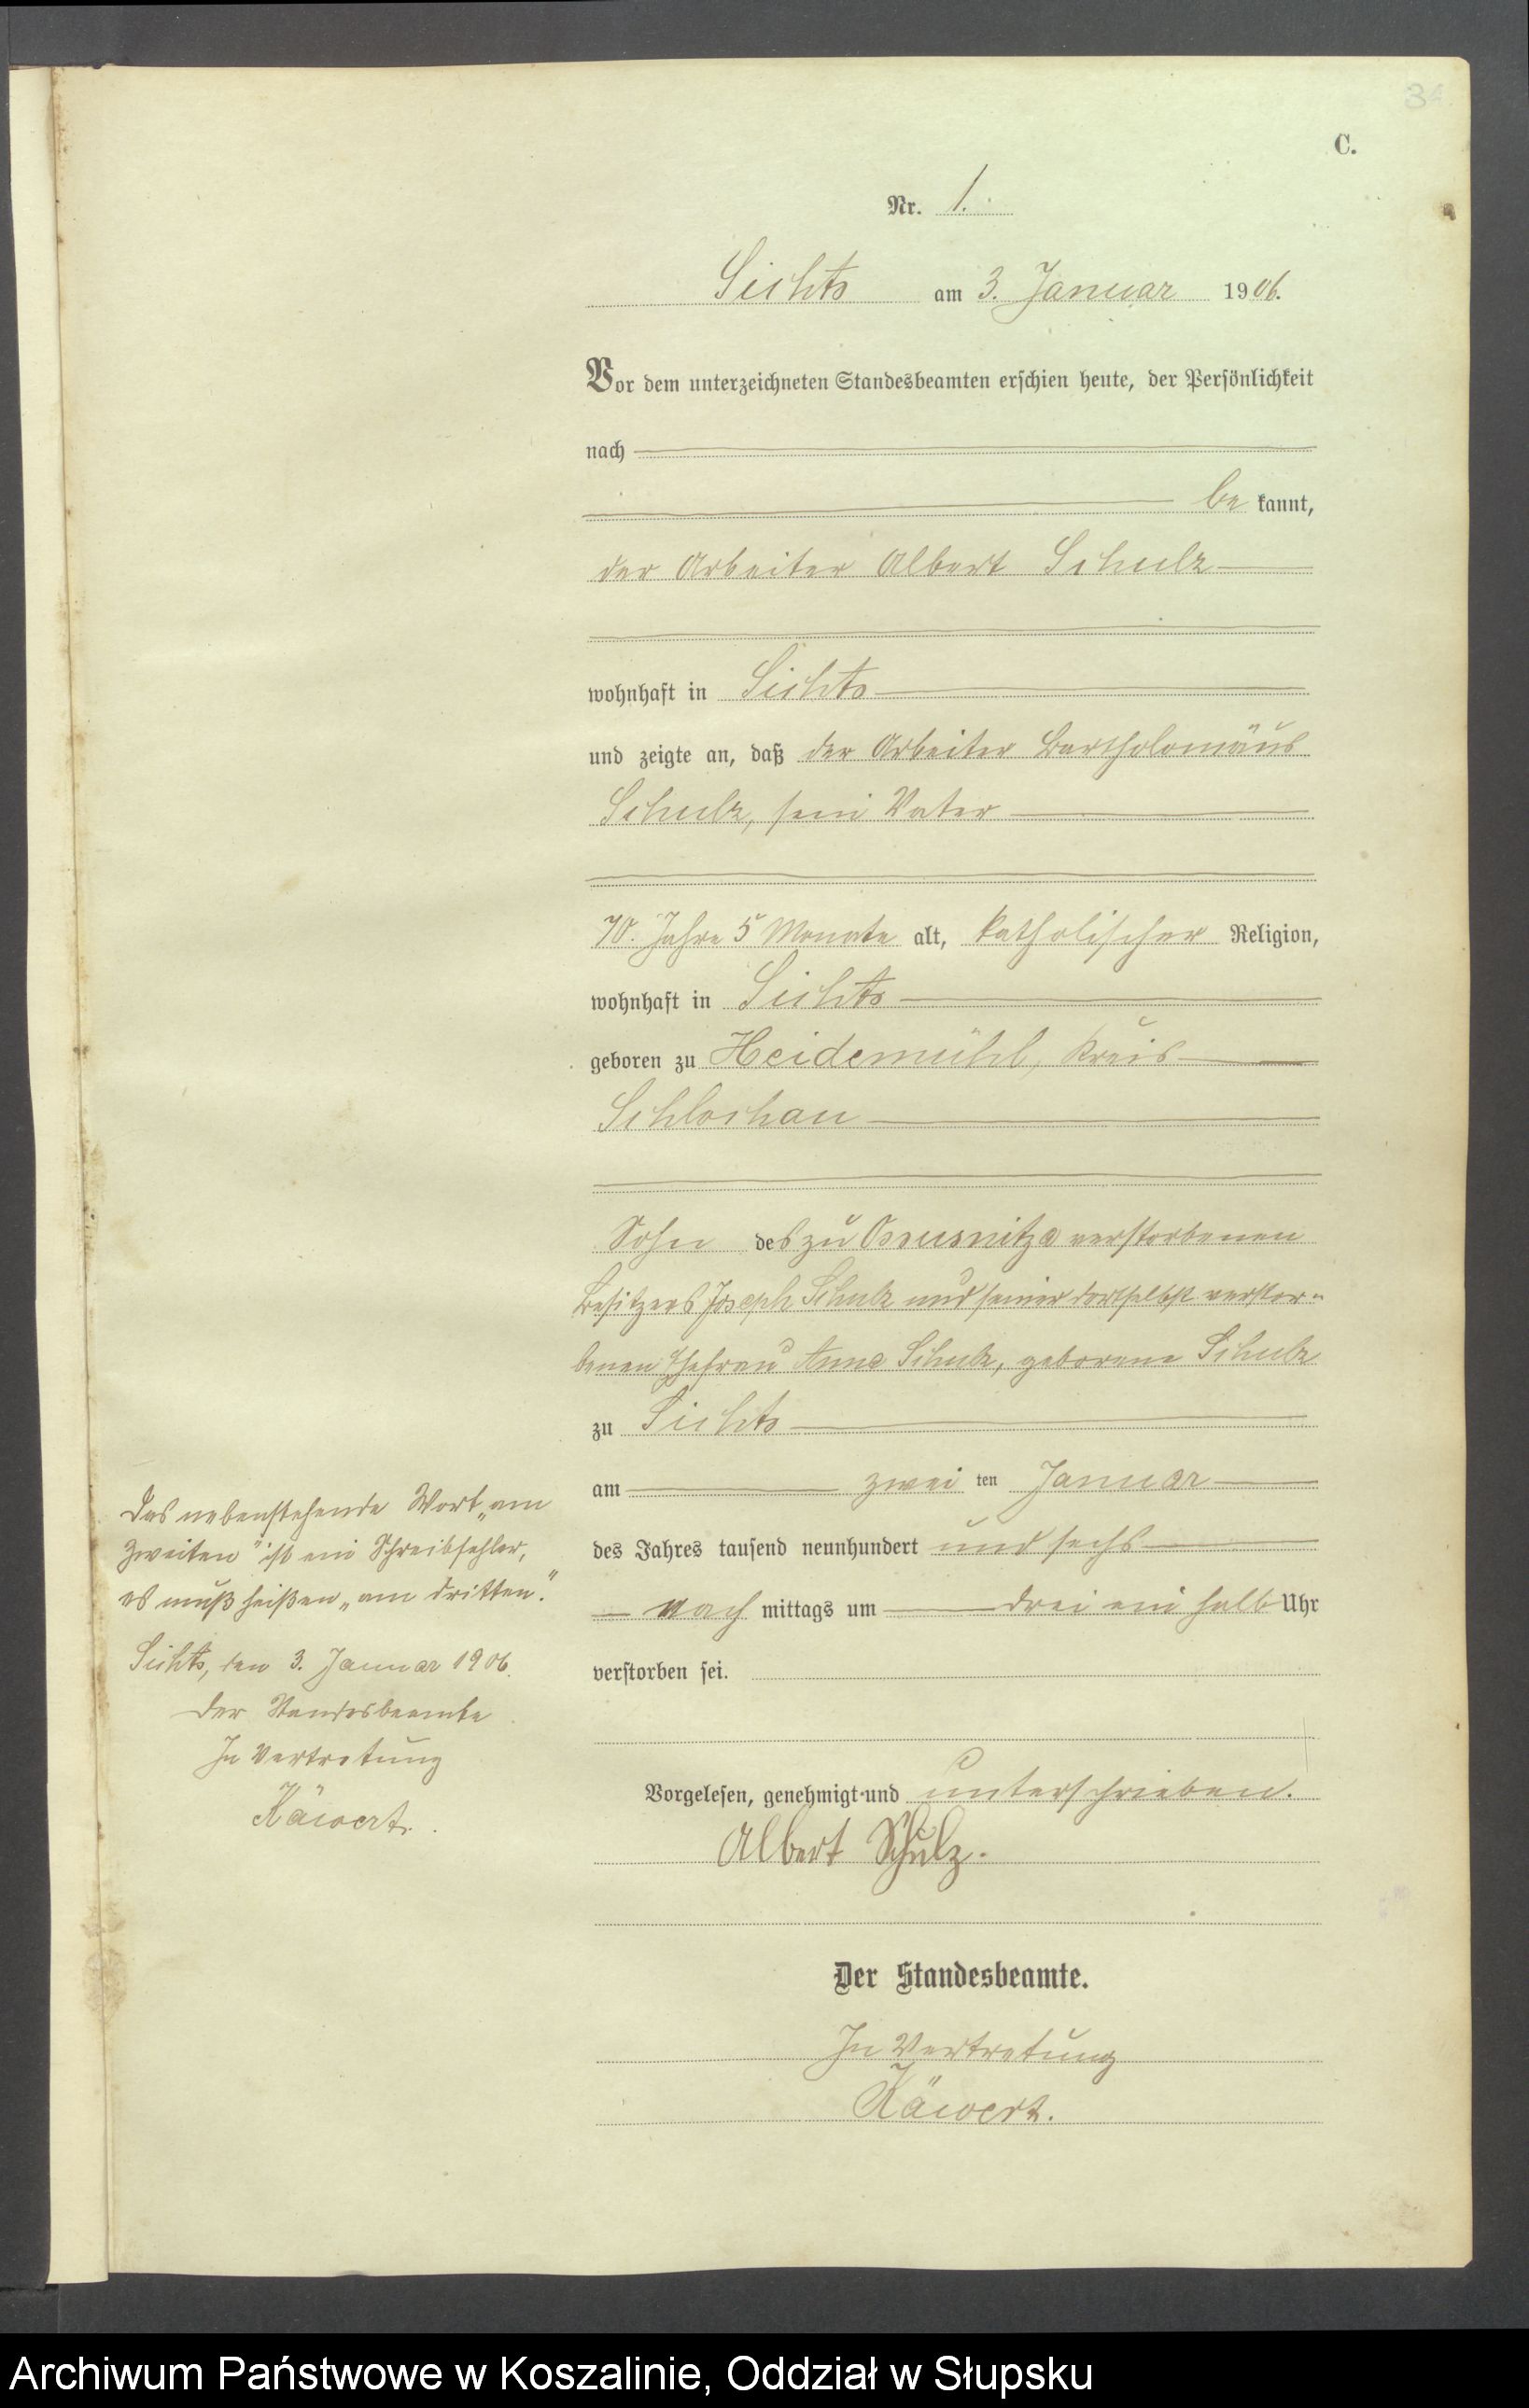 C.
Nr. 1.
Sichts am 3. Januar 1906.
Vor dem unterzeichneten Standesbeamten erschien heute, der Persönlichkeit
nach
be kannt,
der Arbeiter Albert Schulz
wohnhaft in Sichts
und zeigte an, daß der Arbeiter Bartholomäus
Schulz, sein Vater
70. Jahre 5 Monate alt, katholischer Religion,
wohnhaft in Sichts
geboren zu Heidemühl, Kreis
Schlochau
Sohn des zu Ossusnitza verstorbenen
Besitzers Joseph Schulz und seiner dortselbst verstor-
benen Ehefrau Anna Schulz, geborene Schulz
zu Sichts
am zwei ten Januar
des Jahres tausend neunhundert und sechs
nach mittags um drei ein halb Uhr
verstorben sei.
Das nebenstehende Wort „am
zweiten" ist ein Schreibfehler,
es muß heißen „am dritten."
Sichts, den 3. Januar 1906.
Der Standesbeamte
In Vertretung
Käwert.
Vorgelesen, genehmigt und unterschrieben.
Albert Schulz.
Der Standesbeamte.
In Vertretung
Käwert.
Archiwum Państwowe w Koszalinie, Oddział w Słupsku